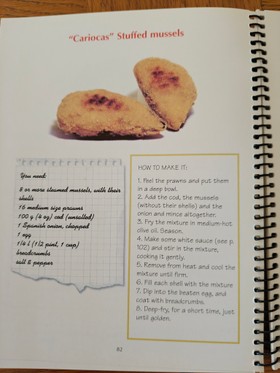 "Cariocas" Stuffed mussels
You need:
8 or more steamed mussels, with their
shells
16 medium size prawns
100 g (4 oz) cod (unsalted)
1 Spanish onion, chopped
1 egg
1/4 l (1/2 pint, 1 cup)
breadcrumbs
salt & pepper
HOW TO MAKE IT:
1. Peel the prawns and put them
in a deep bowl.
2. Add the cod, the mussels
(without their shells) and the
onion and mince altogether.
3. Fry the mixture in medium-hot
olive oil. Season.
4. Make some white sauce (see p
102) and stir in the mixture,
cooking it gently.
5. Remove from heat and cool the
mixture until firm.
6. Fill each shell with the mixture
7. Dip into the beaten egg, and
coat with breadcrumbs.
8. Deep-fry, for a short time, just
until golden.